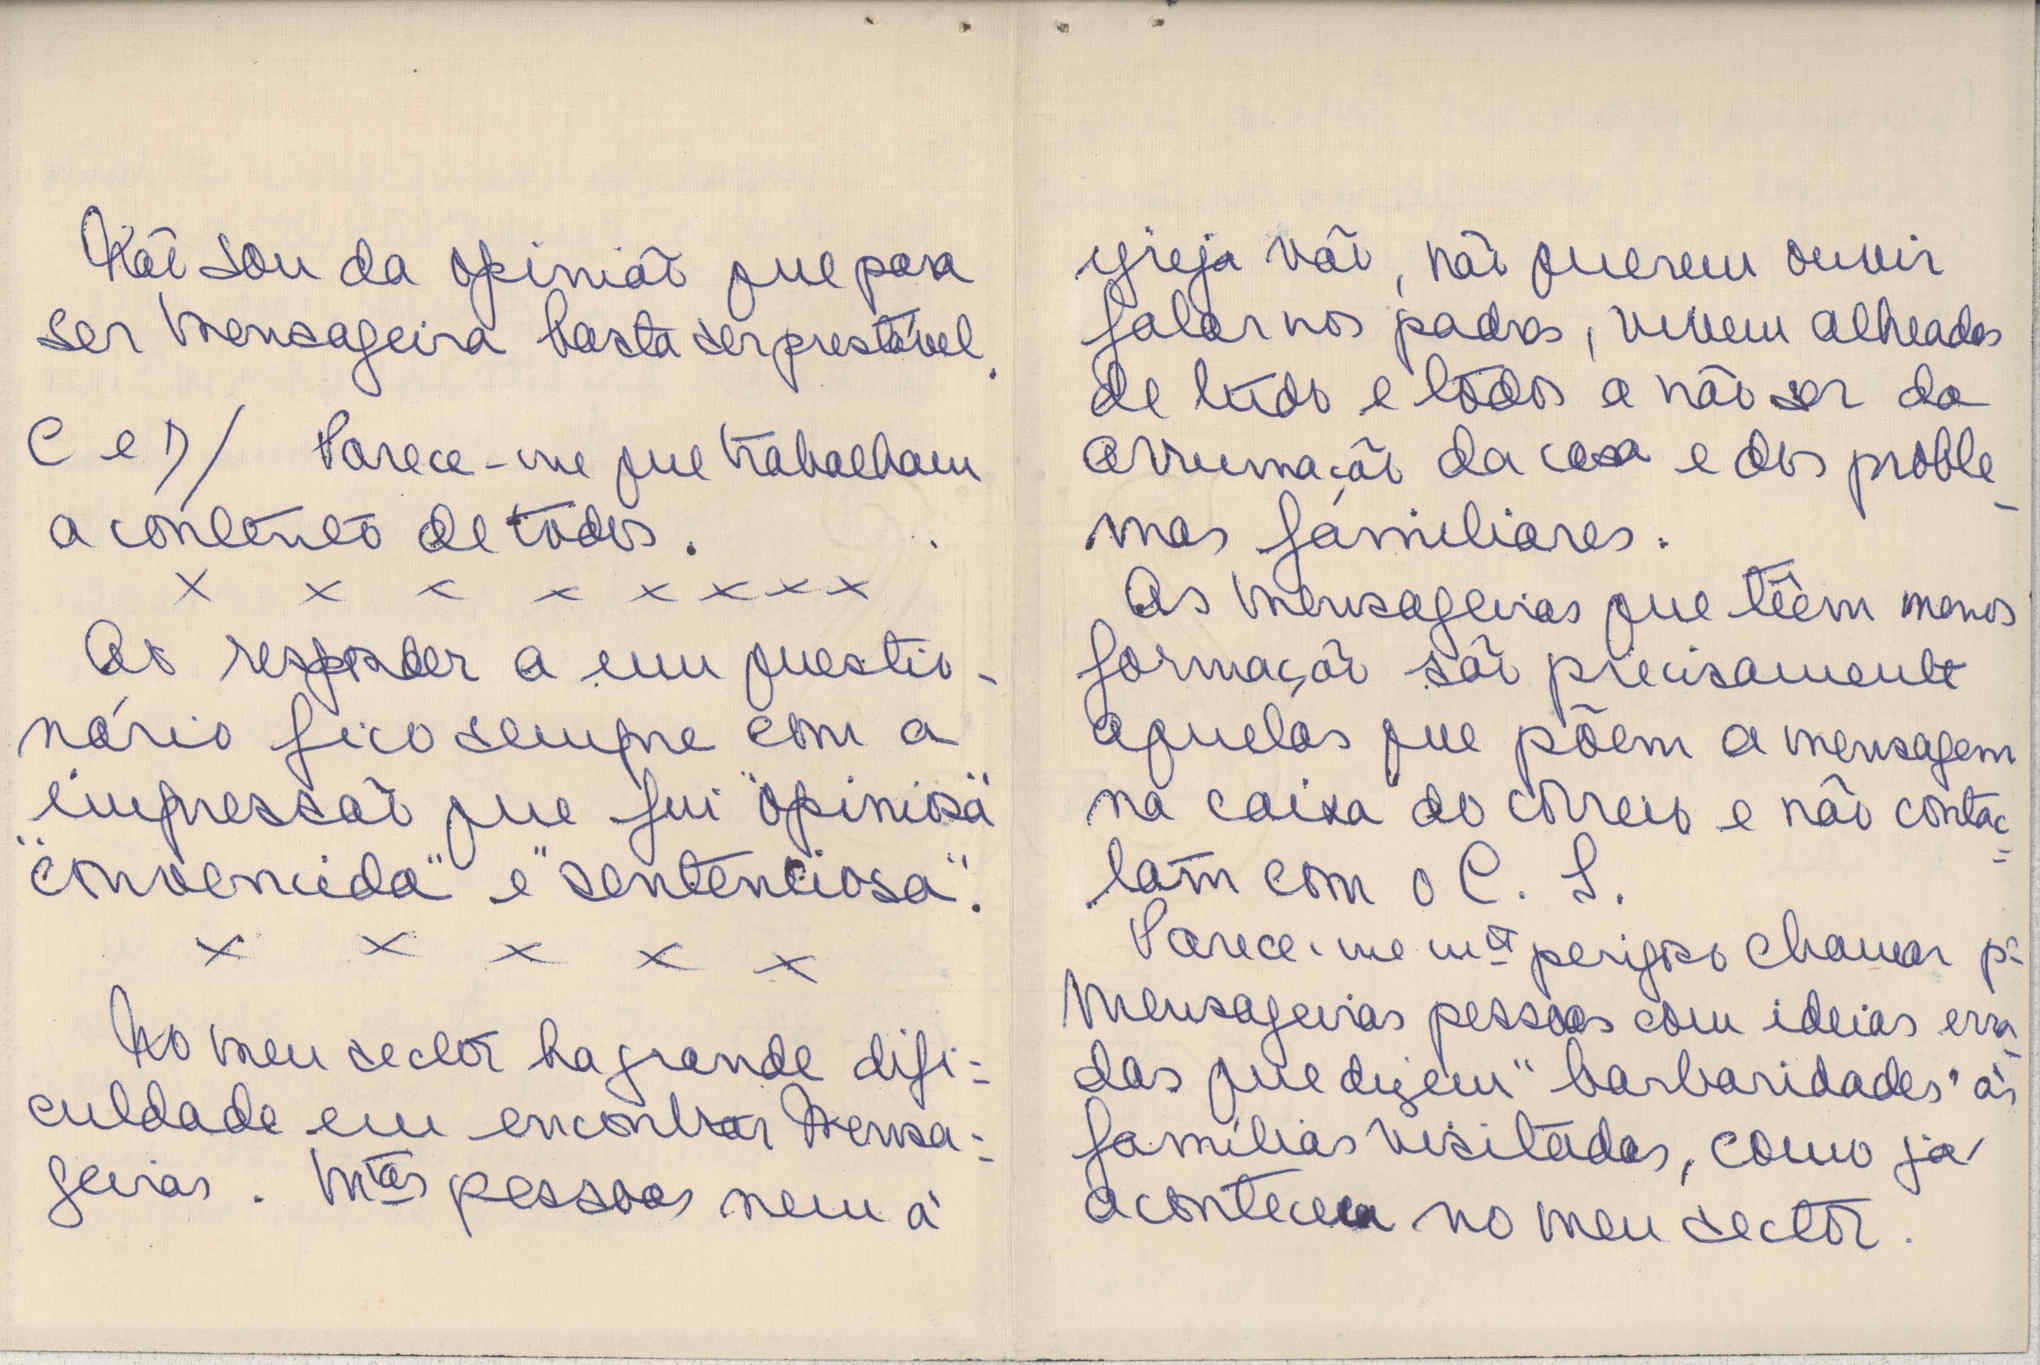 Não sou da opinião que para
ser Mensageira basta ser prestável.
C e D/ Parece-me que trabalham
a contento de todos.
x x x x x x x x
Ao responder a um questio-
nário fico sempre com a
impressão que fui "opiniosa"
"convencida" e "sentenciosa".
x x x x x
No meu sector ha grande difi=
culdade em encontrar Mensa=
geiras. Mtas pessoas nem à
igreja vão, não querem ouvir
falar nos padres, vivem alheadas
de tudo e todos a não ser da
arrumação da casa e dos proble-
mas familiares.
As Mensageiras que têem menos
formação são precisamente
aquelas que põem a mensagem
na caixa do correio e não contac=
tam com o C. S.
Parece-me mto perigoso chamar pa
Mensageiras pessoas com ideias erra-
das que dizem "barbaridades" às
famílias visitadas, como já
aconteceu no meu sector.